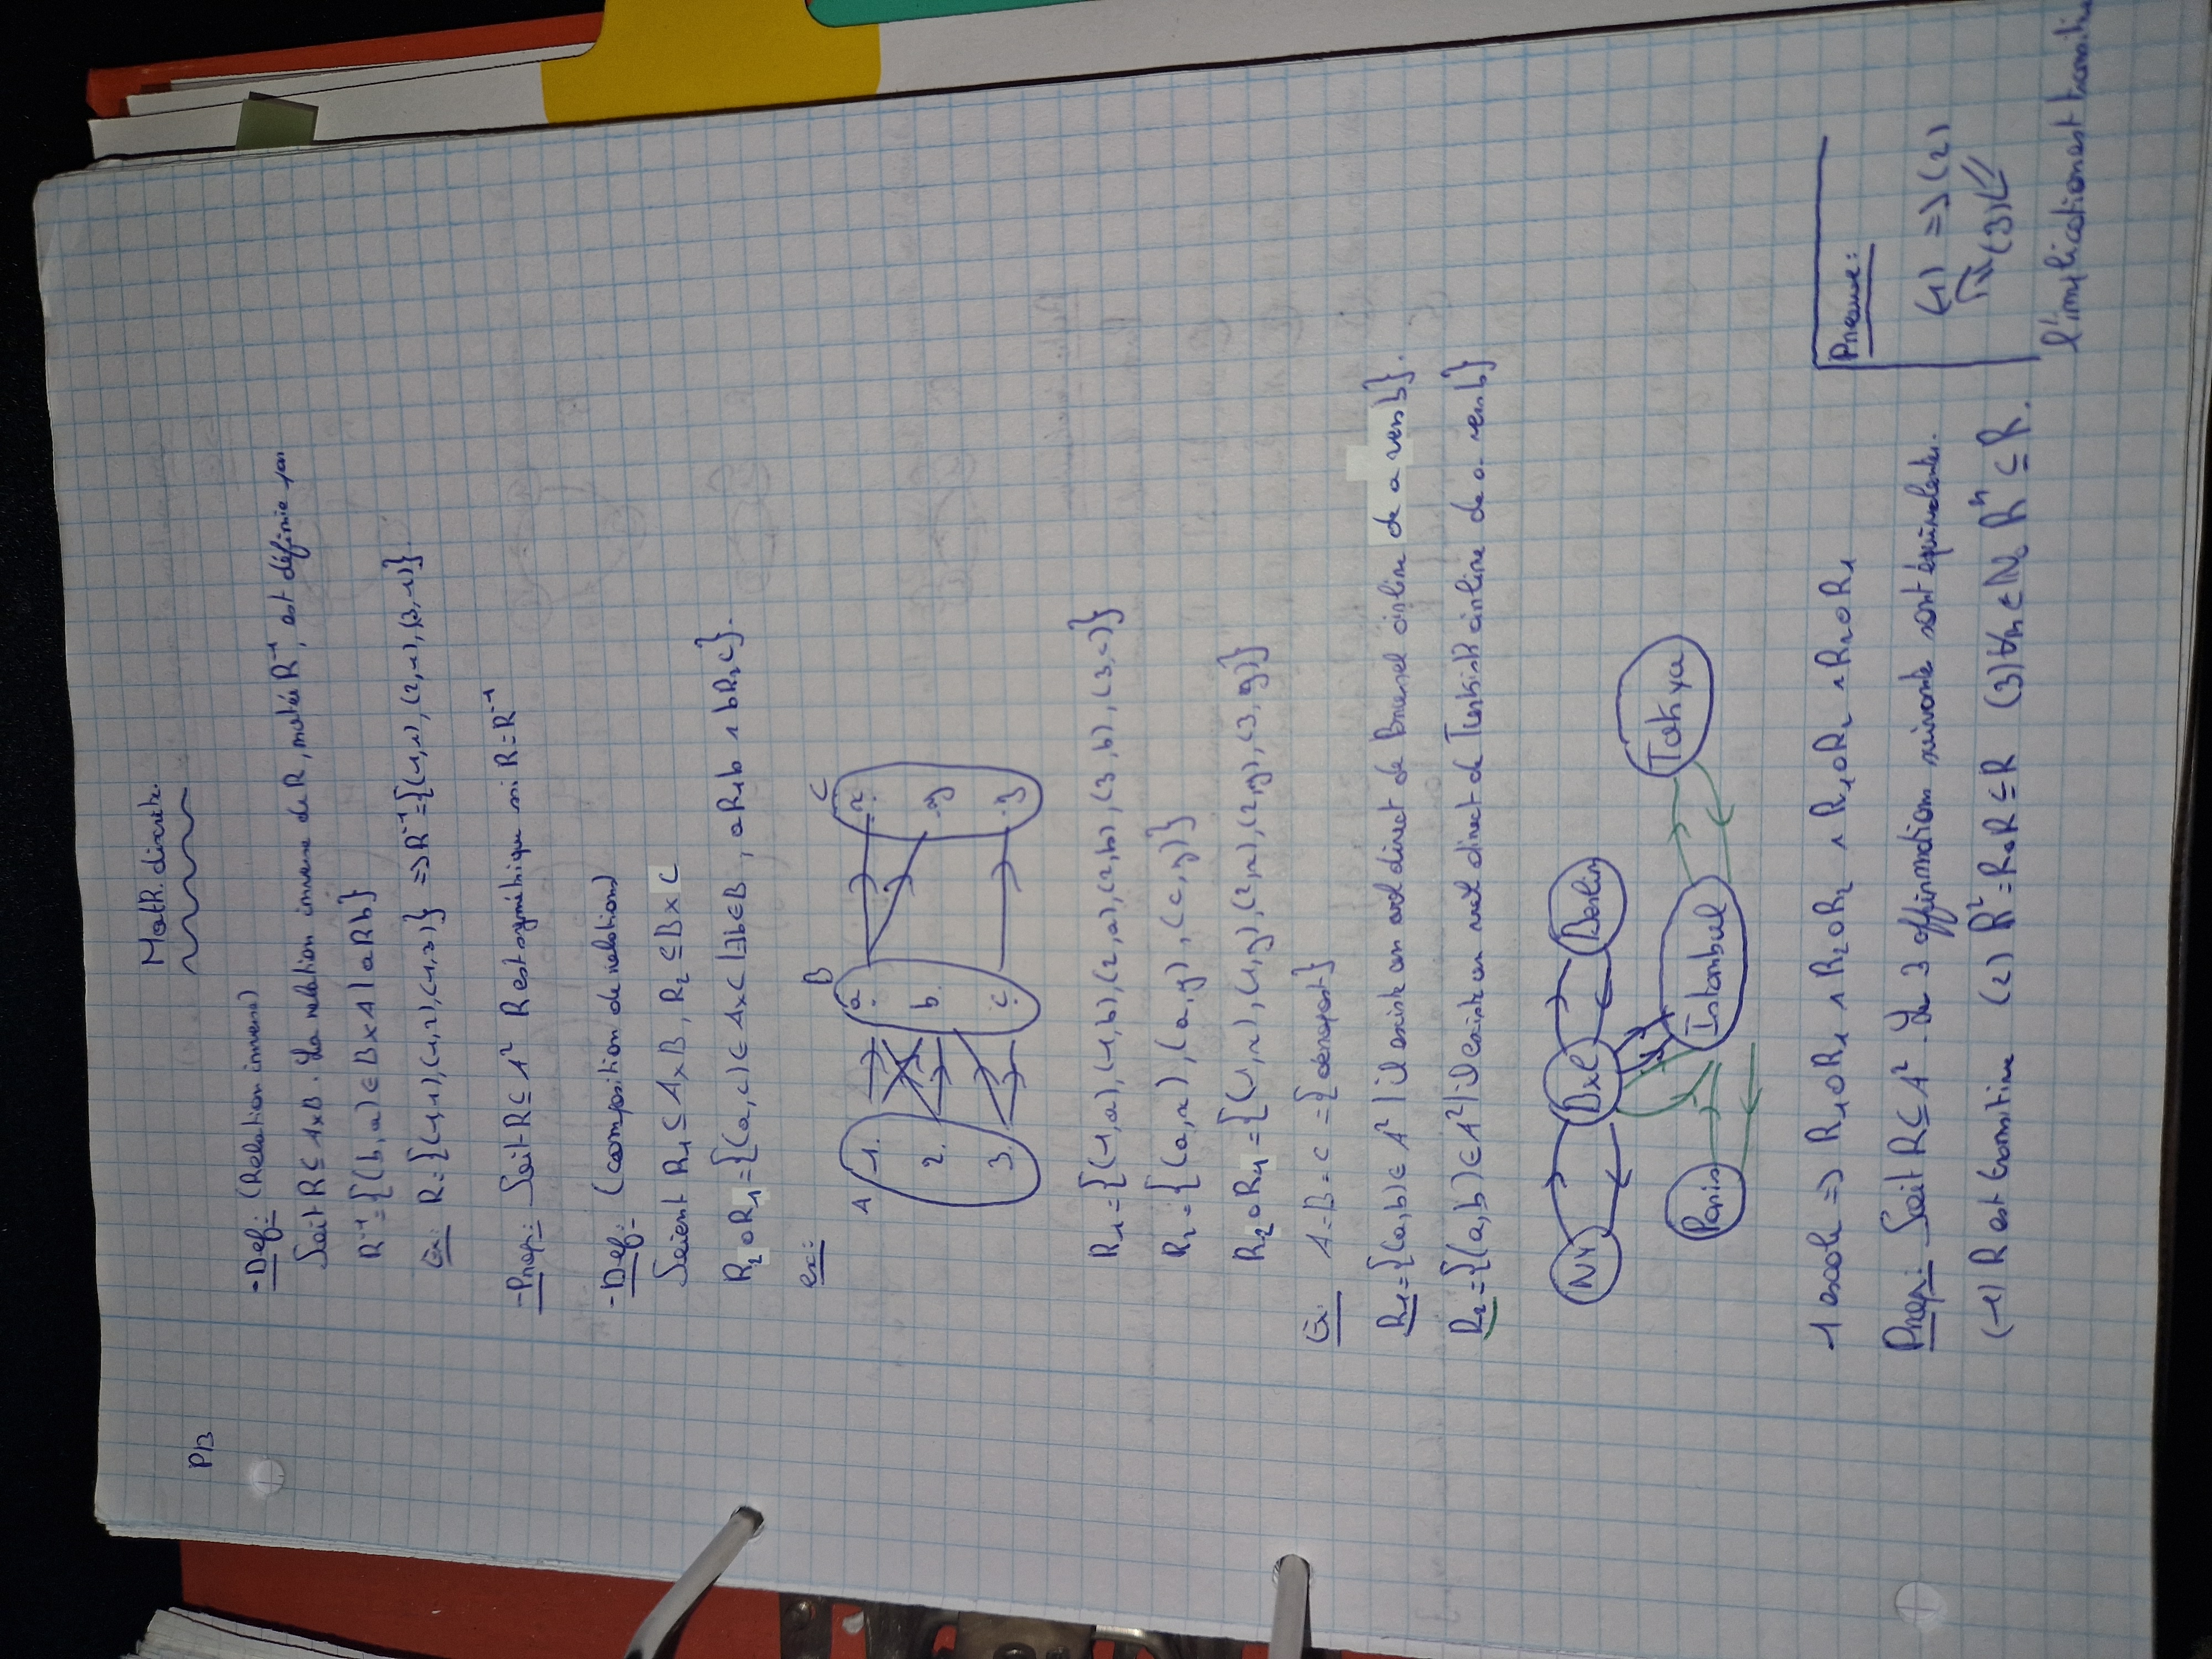 Math. discrete.
P13
-Def: (Relation inverse)
Soit R ⊆ A×B. La relation inverse de R, notée R⁻¹, est définie par
R⁻¹={(b,a)∈B×A | aRb}
Ex: R={(1,1),(1,2),(1,3)} => R⁻¹={(1,1),(2,1),(3,1)}.
-Prop: Soit R ⊆ A² R est symétrique ssi R=R⁻¹
-Def: (composition de relations)
Soient R₁ ⊆ A×B, R₂ ⊆ B×C
R₂∘R₁={(a,c)∈A×C | ∃b∈B, aR₁b ∧ bR₂c}.
ex:
A B C
1. a x
2. b y
3. c z
R₁={(1,a),(1,b),(2,a),(2,b),(3,b),(3,c)}
R₂={(a,x),(a,y),(c,z)}
R₂∘R₁={(1,x),(1,y),(2,x),(2,y),(3,z)}
Ex: A=B=C={aéroport}
R₁={(a,b)∈A² | il existe un vol direct de Brussel airline de a vers b}.
R₂={(a,b)∈A² | il existe un vol direct de Turkish airline de a vers b}
NY Bxl Berlin
Paris Istambul Tokyo
1 escale => R₁∘R₁ ∧ R₂∘R₂ ∧ R₁∘R₂ ∧ R₂∘R₁
Prop: Soit R ⊆ A². Les 3 affirmations suivantes sont équivalentes.
(1) R est transitive (2) R²=R∘R⊆R (3) ∀n∈N₀ Rⁿ ⊆ R.
Preuve:
(1) => (2)
(3)
l'implication est transitive